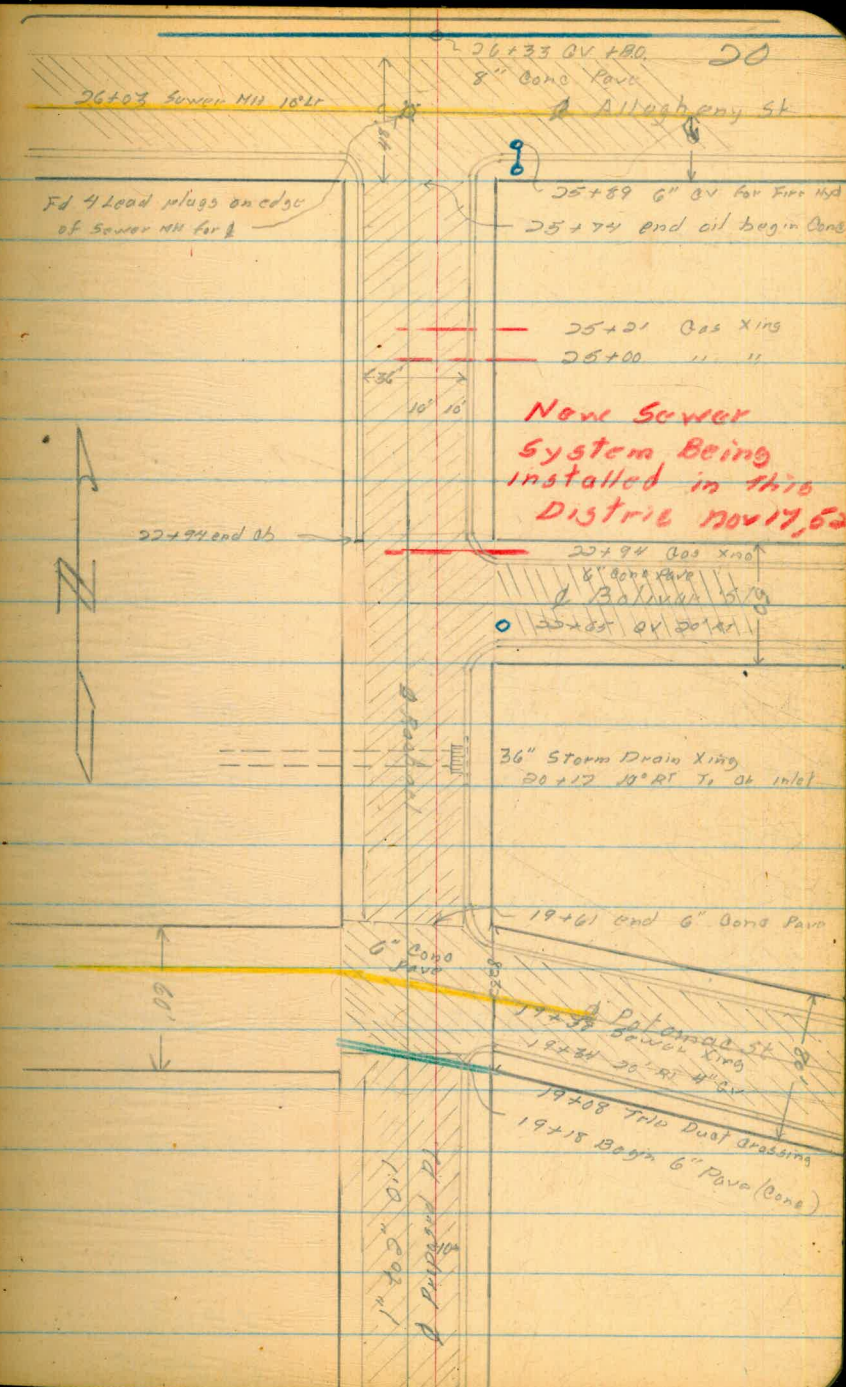 20
26+33 GV + B.O.
8" Conc Pave
26+03 Sewer MH 10' Lt
℄ Allegheny St
84'
25+89 6" GV for Fire Hyd
Fd 4 Lead plugs on edge
of Sewer MH for ℄
25+74 end oil begin Conc
25+21 Gas Xing
25+00 " "
36'
10' 10'
New Sewer
System Being
installed in This
Distric Nov 17, 52
22+94 end Cb
22+94 Gas Xing
6" Conc Pave
℄ Bolivar St
50'
22+65 GV 20' Rt
N
36" Storm Drain Xing
20+17 10' RT To Cb inlet
19+61 end 6" Conc Pave
6" Conc
Pave
60'
℄ Potomac St
19+39 Sewer Xing
19+34 20' Rt 4" GV
19+08 Trip Duct Crossing
19+18 Begin 6" Pave (Conc)
10'